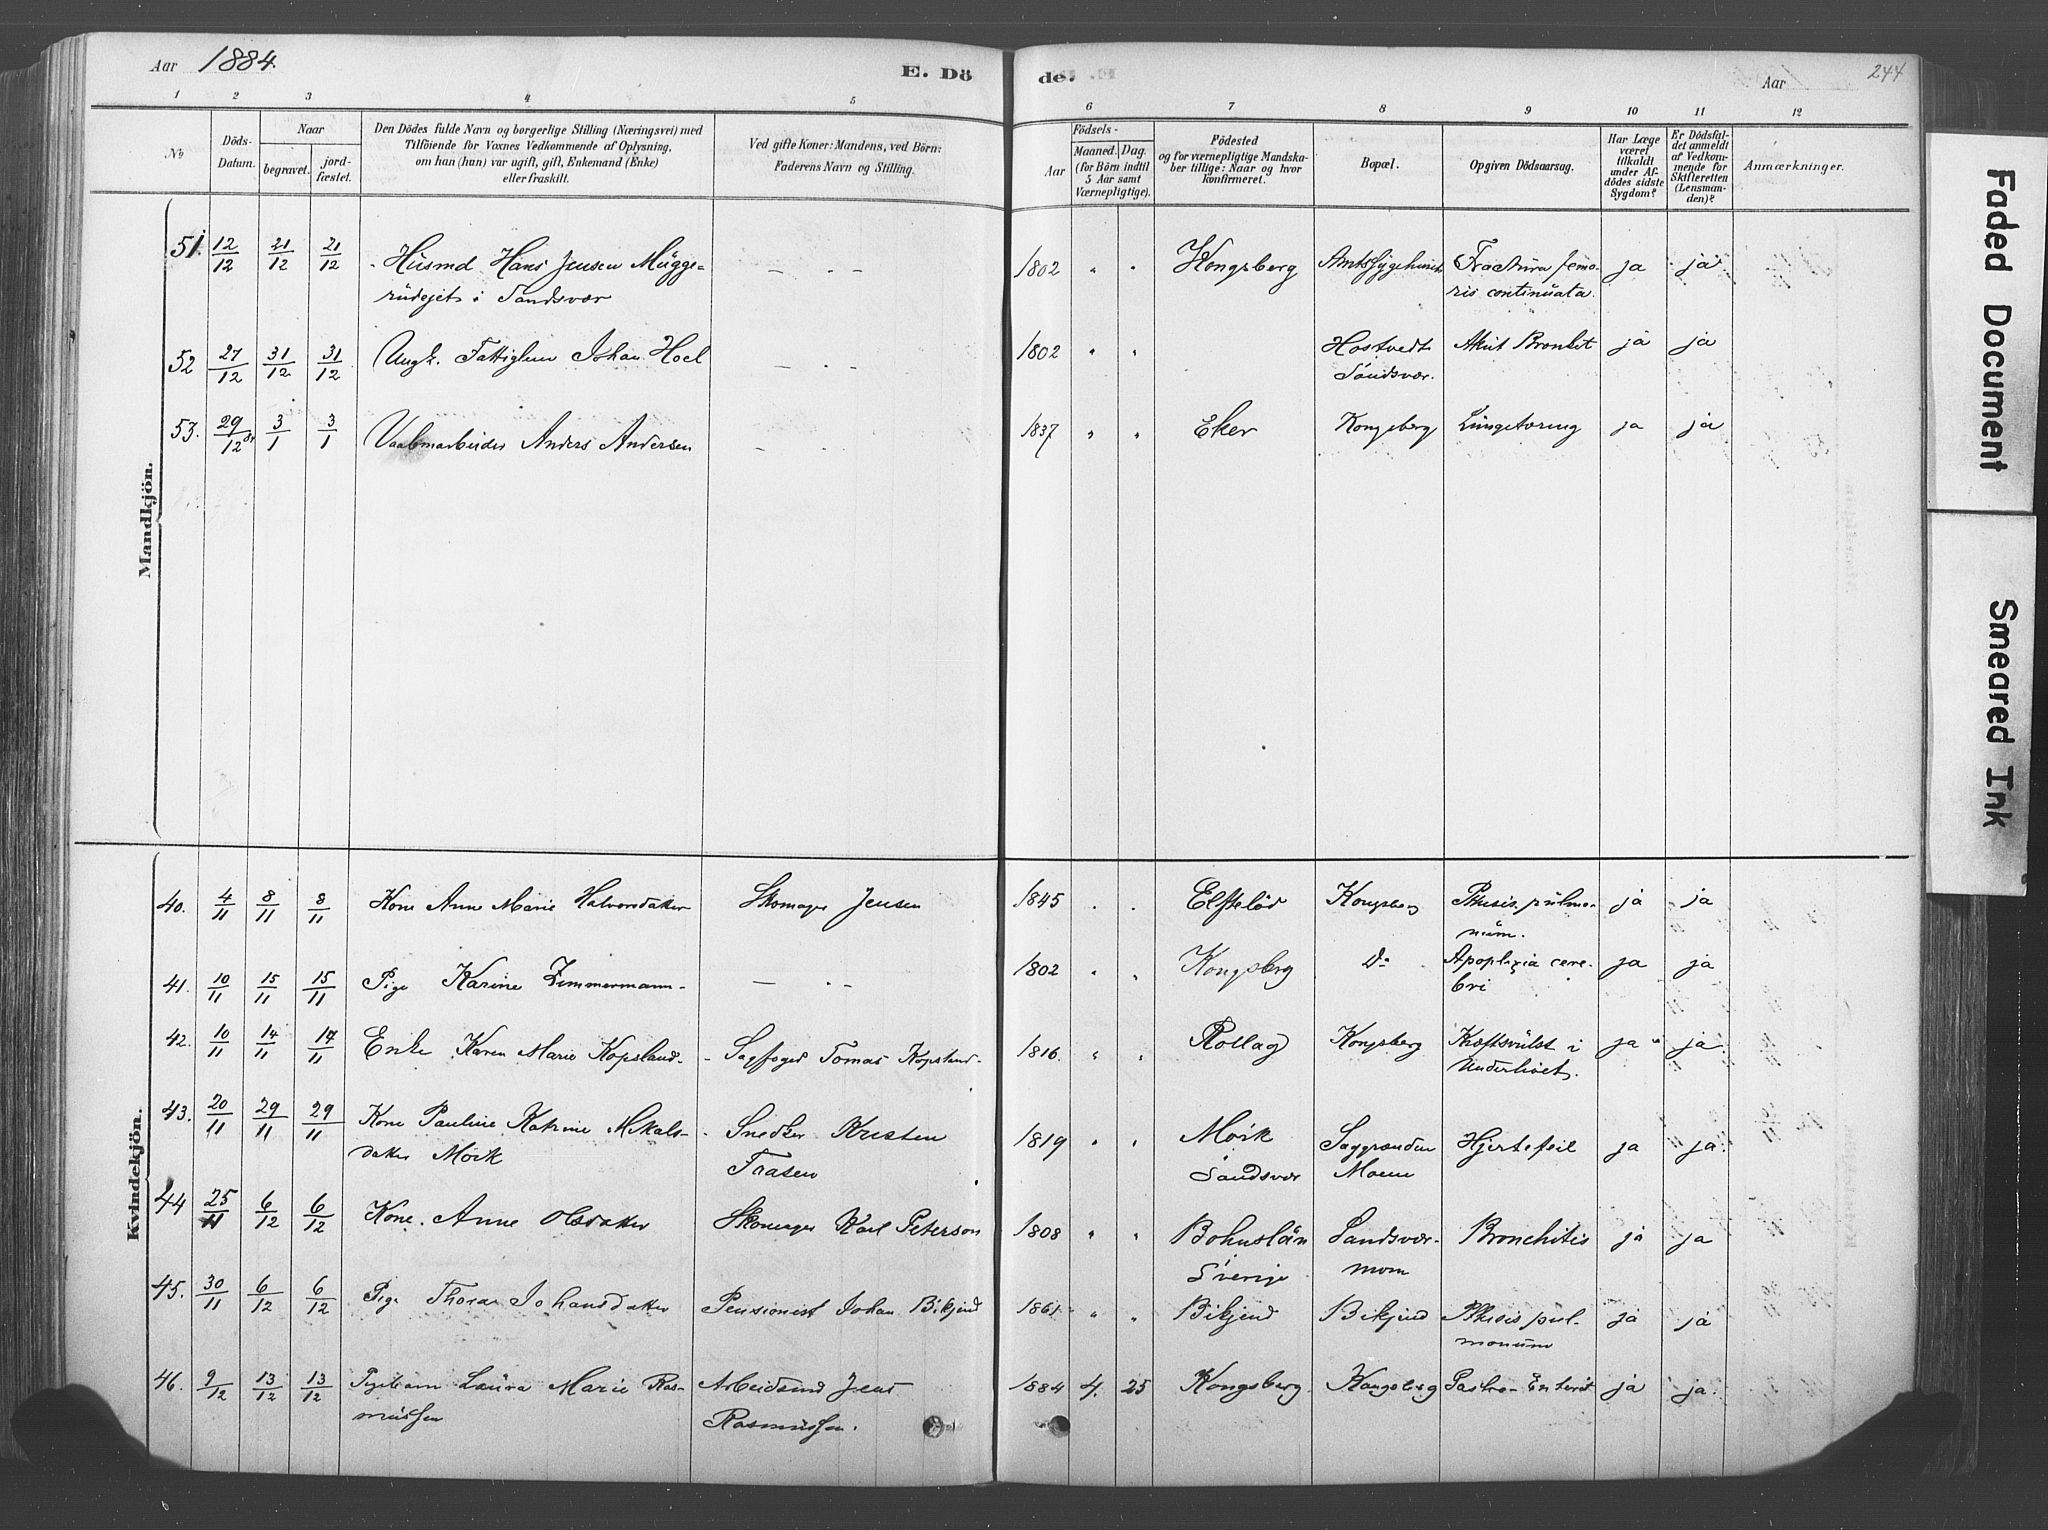 Aar 1884.
E. Dö
de.
Aar
244
1 2 3 4 5 6 7 8 9 10 11 12
No
Döds-Datum.
Naar
begravet.
jord-fæstet.
Den Dödes fulde Navn og borgerlige Stilling (Næringsvei) med
Tilföiende for Voxnes Vedkommende af Oplysning,
om han (hun) var ugift, gift, Enkemand (Enke)
eller fraskilt.
Ved gifte Koner: Mandens, ved Börn:
Faderens Navn og Stilling.
Födsels-
Aar
Maaned. Dag.
(for Börn indtil
5 Aar samt
Værnepligtige).
Födested
og for værnepligtige Mandska-
ber tillige: Naar og hvor
konfirmeret.
Bopæl.
Opgiven Dödsaarsag.
Har Læge
været
tilkaldt
under Af-
dödes sidste
Sygdom?
Er Dödsfal-
det anmeldt
af Vedkom-
mende for
Skifteretten
(Lensman-
den)?
Anmærkninger.
Mandkjön.
51. 12/12 21/12 21/12 Husmd Hans Jensen Mugge- — 1802 " " Kongsberg Fractura femo- ja ja
rudejet i Sandsvær ris continuata.
52 27/12 31/12 31/12 Ungk. Johan Hoel — 1802 " " Hostvedt Akut Bronkit ja ja
Sandsvær.
53. 29/12 84 3/1 3/1 Vaabenarbeider Anders Andersen — 1837 " " Eker Kongsberg Lungetæring ja ja
Kvindekjön.
40. 4/11 8/11 8/11 Kone Anne Marie Halvorsdatter Skomager Jensen 1845 " " Eftelød Kongsberg Phtisis pulmo- ja ja
num.
41. 10/11 15/11 15/11 Pige Karine Zimmermann — 1802 " " Kongsberg Do Apoplexia cere- ja ja
bri
42. 10/11 14/11 17/11 Enke Karen Marie Kopsland Sagfoged Tomas Kopsland 1816. " " Rollag Kongsberg Kræftsvulst i ja ja
Underlivet.
43. 20/11 29/11 29/11 Kone Pauline Katrine Mikals- Snedker Kristen 1819 " " Moik Saggrænden Hjertefeil ja ja.
datter Moik Faasen Sandsvær Moene
44 25/11 6/12 6/12 Kone Anne Olsdatter Skomager Karl Peterson 1808 " " Bohuslän Sandsvær- Bronchitis ja ja
Sverige moen
45. 30/11 6/12 6/12 Pige Thorine Johansdatter Pensionist Johan Bikjend 1861. " " Bikjend Bikjend Phtisis pul- ja ja
monum
46. 9/12 13/12 13/12 Pigebarn Laura Marie Ras- Arbeidsmd Jens 1884 4. 25 Kongsberg. Kongsberg Gastro-Enterit ja ja.
mussen Rasmussen.
Faded Document
Smeared Ink